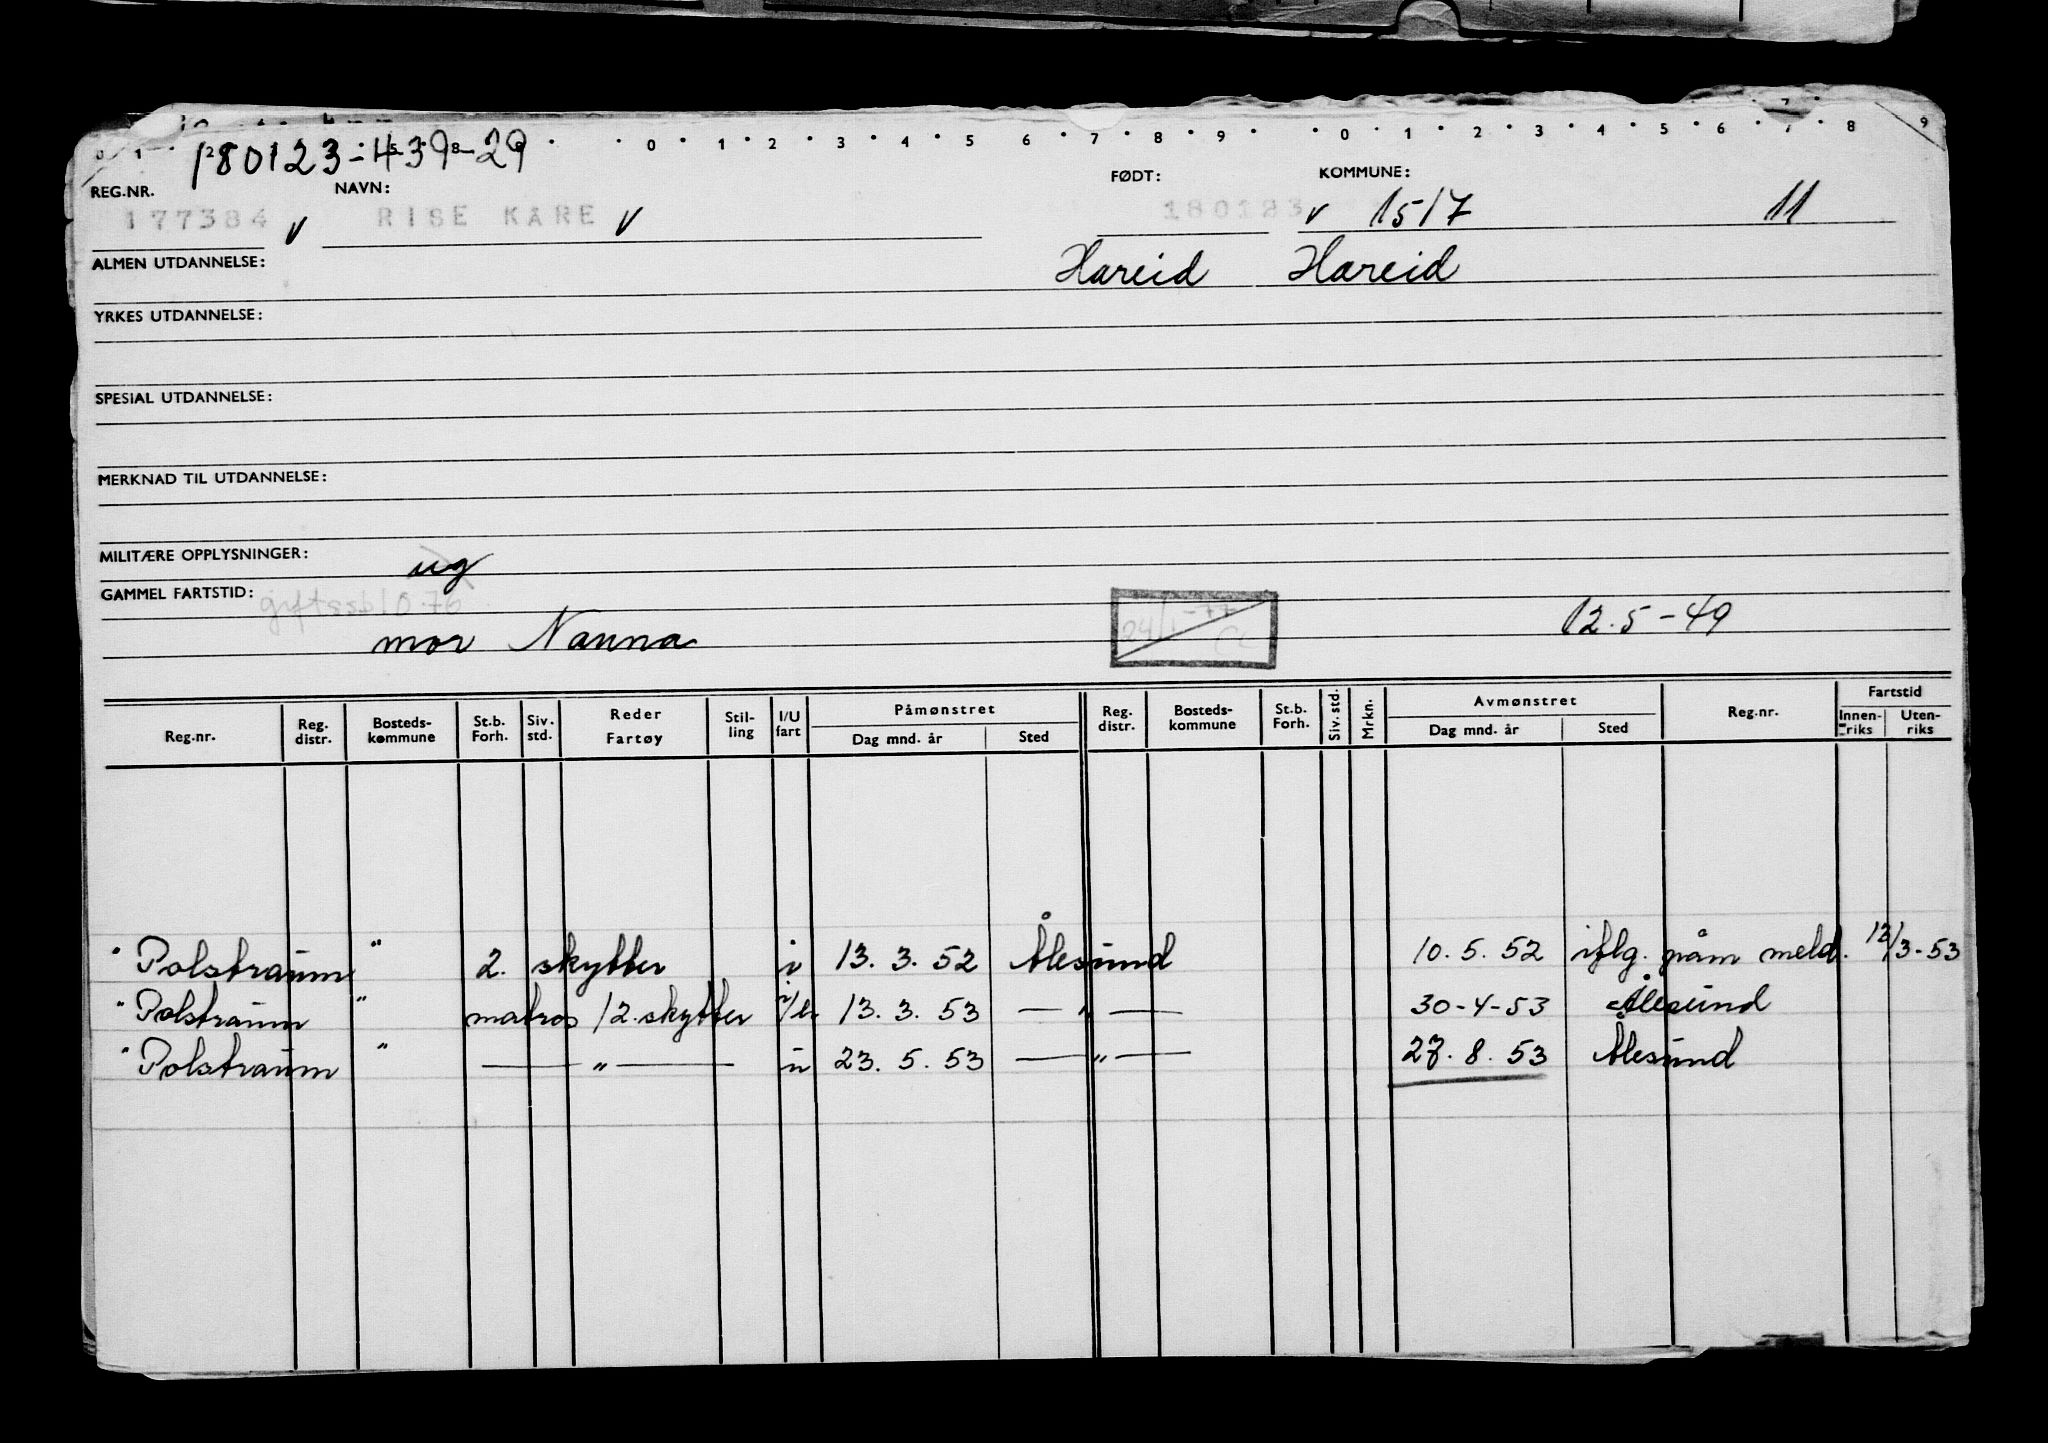 0 1 2 5 8 9 0 1 2 3 4 5 6 7 8 9 0 1 2 3 4 5 6 7 8 9
180123-439-29
REG.NR. NAVN: FØDT: KOMMUNE:
177384 v RISE KARE v 180123 v 1517 11
ALMEN UTDANNELSE: Hareid Hareid
YRKES UTDANNELSE:
SPESIAL UTDANNELSE:
MERKNAD TIL UTDANNELSE:
MILITÆRE OPPLYSNINGER: ug
GAMMEL FARTSTID:
mor Nanna 24/1-77 12.5-49
Reg.nr. Reg. distr. Bosteds-kommune St.b. Forh. Siv. std. Reder Fartøy Stil-ling I/U fart Påmønstret Dag mnd. år Sted Reg. distr. Bosteds-kommune St.b. Forh. Siv. std. Mrkn. Avmønstret Dag mnd. år Sted Reg.nr. Fartstid Innen-riks Uten-riks
" Polstraum " 2. skytter i 13. 3. 52 Ålesund 10. 5. 52 iflg. påm meld. 13/3-53
" Polstraum " matros / 2. skytter i/u 13. 3. 53 — " — 30-4-53 Ålesund
" Polstraum " — " — u 23. 5. 53 — " — 27. 8. 53 Ålesund